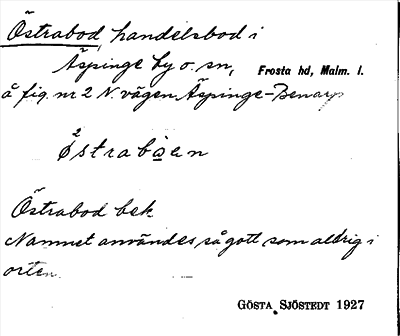 Östrabod, handelsbod i
Äspinge by o. sn, Frosta hd, Malm. l.
å fig. nr 2 N. vägen Äspinge-Benarp
2
østrabọen
Östrabod bek.
Namnet användes så gott som aldrig i
orten.
GÖSTA SJÖSTEDT 1927